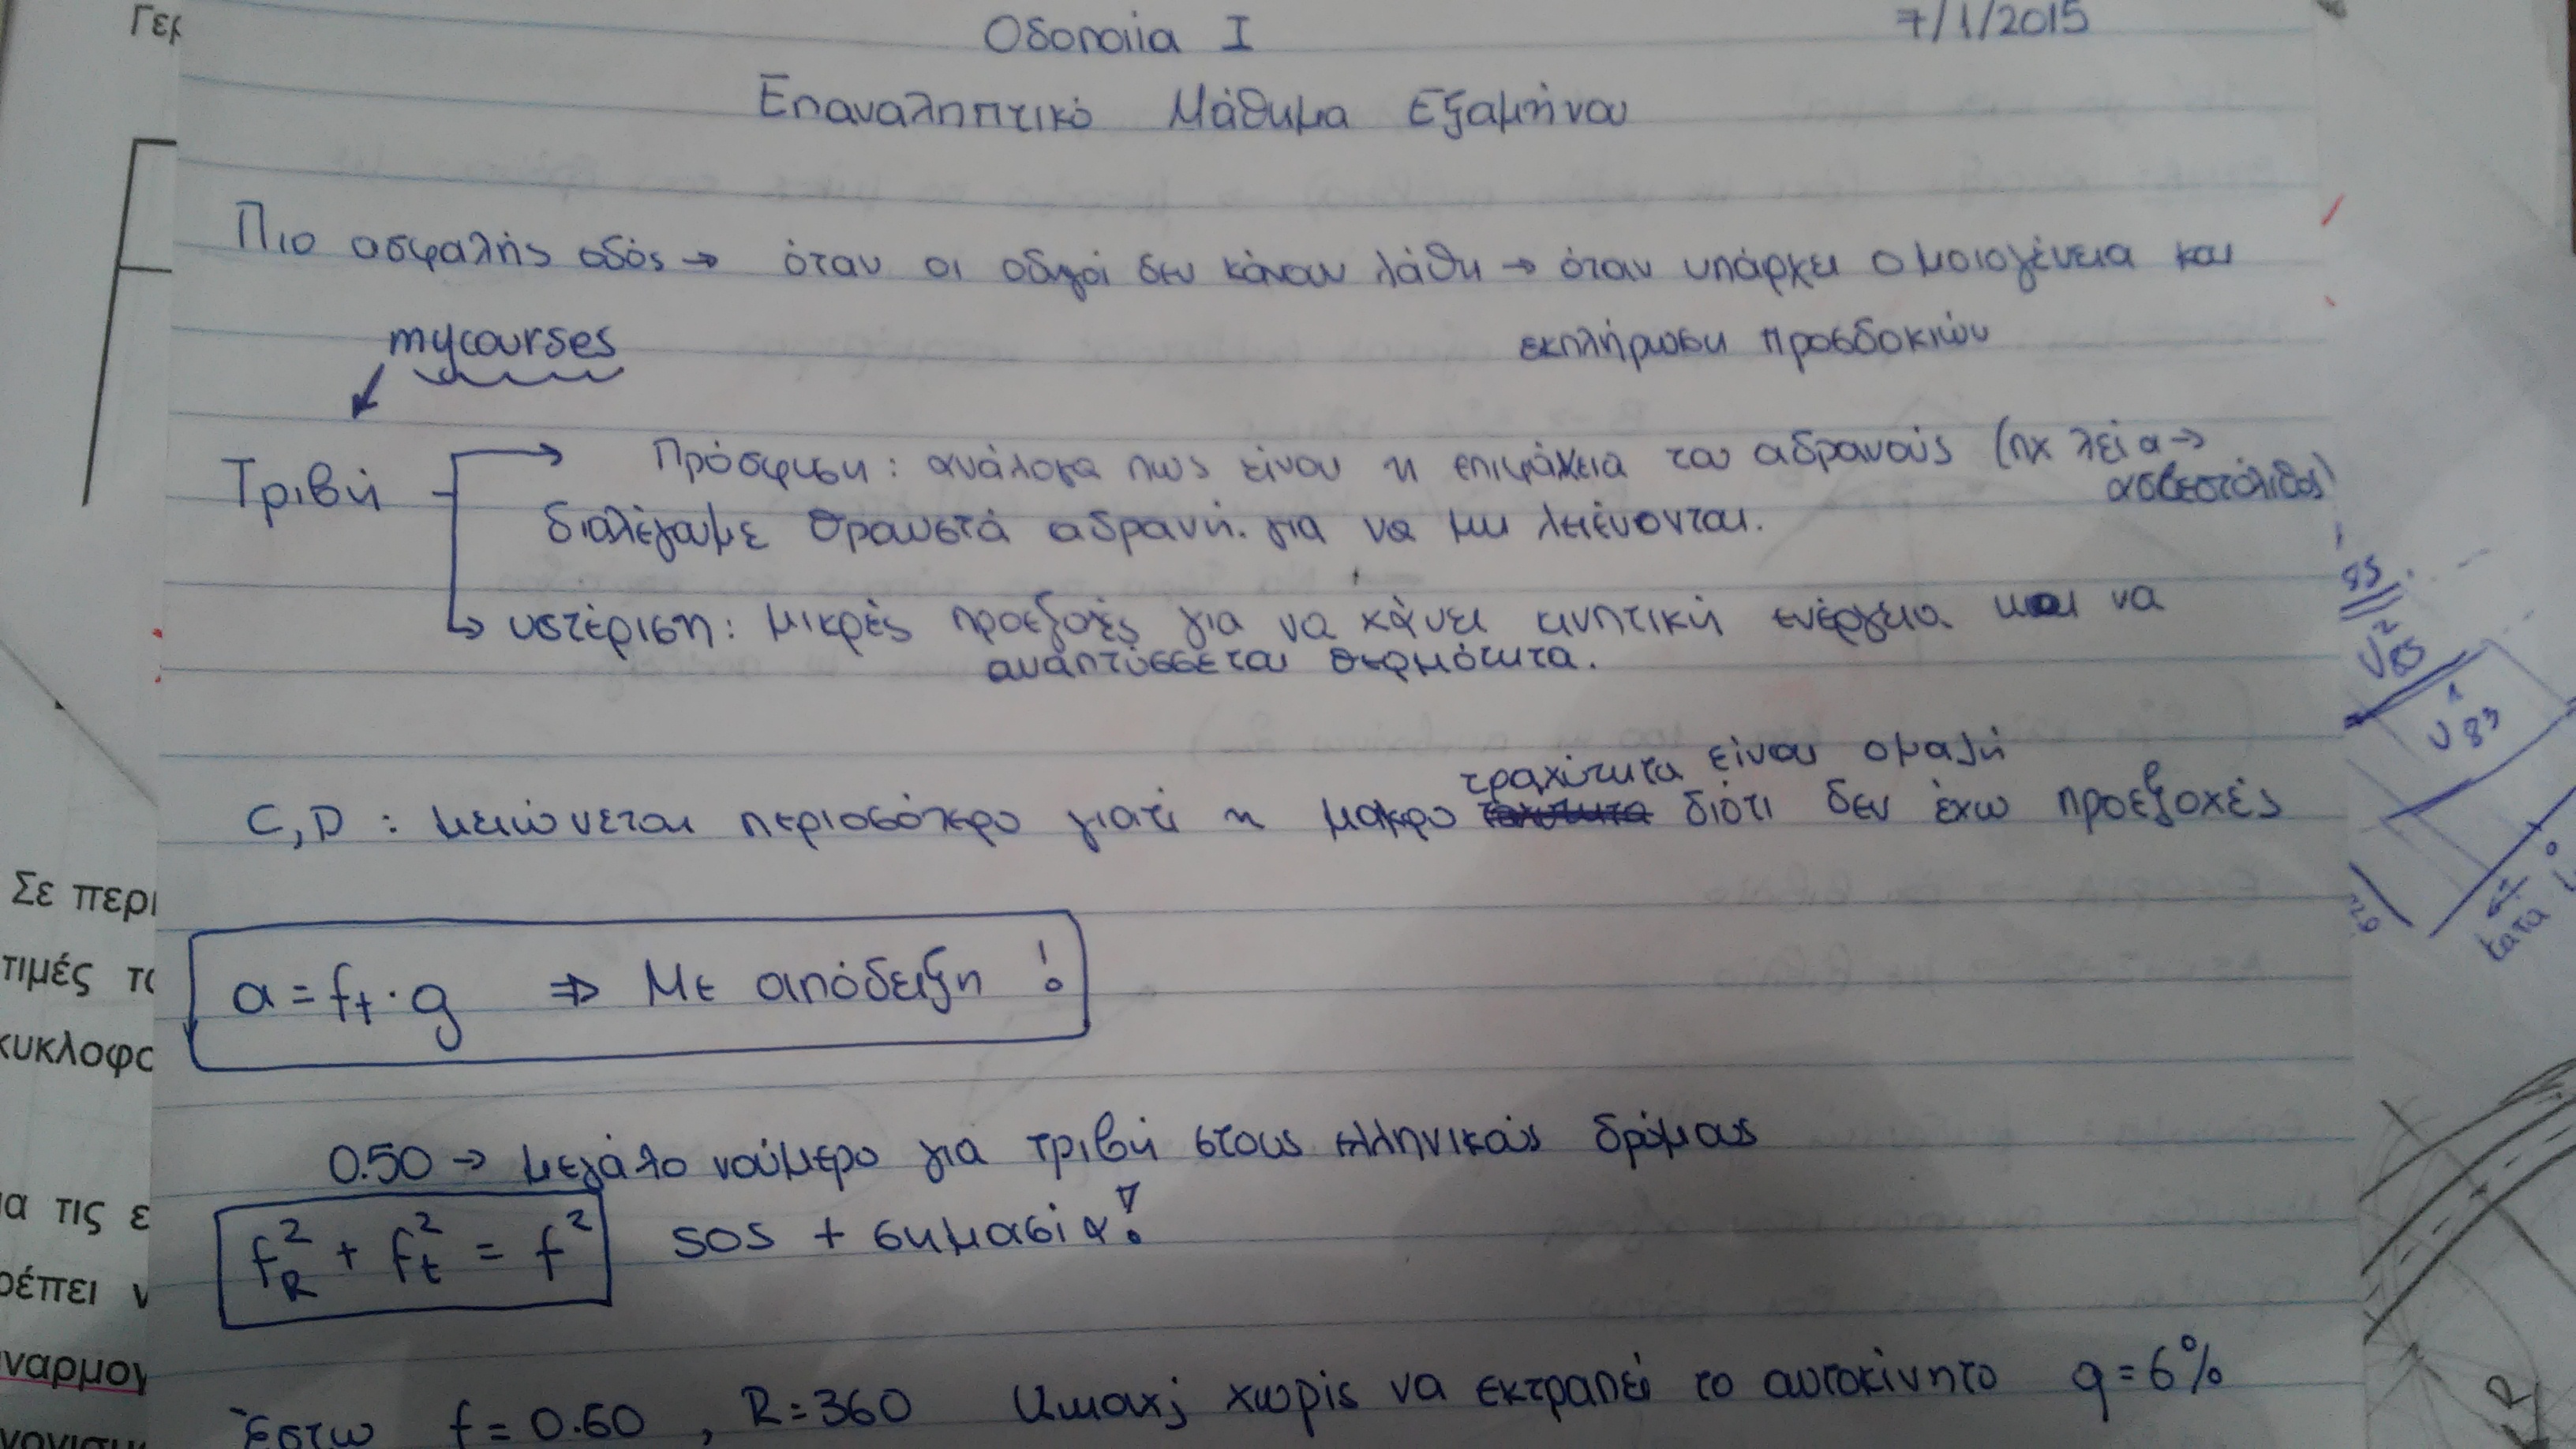 Γερ
Οδοποιία Ι
7/1/2015
Επαναληπτικό Μάθημα Εξαμήνου
Πιο ασφαλής οδός → όταν οι οδηγοί δεν κάνουν λάθη → όταν υπάρχει ομοιογένεια και
εκπλήρωση προσδοκιών
mycourses
Τριβή
Πρόσφυση: ανάλογα πως είναι η επιφάνεια του αδρανούς (πχ λεία →
ασβεστόλιθος)
διαλέγουμε θραυστά αδρανή. για να μη λειένονται.
υστέριση: μικρές προεξοχές για να χάνει κινητική ενέργεια και να
αναπτύσσεται θερμότητα.
τραχύτητα είναι ομαλή
C, D : μειώνεται περισσότερο γιατί η μακρο διότι δεν έχω προεξοχές
a = ft · g ⇒ Με απόδειξη !
0.50 → μεγάλο νούμερο για τριβή στους ελληνικούς δρόμους
f_R² + f_t² = f² sos + σημασία!
Έστω f = 0.60 , R = 360 Umax; χωρίς να εκτραπεί το αυτοκίνητο q = 6%
Σε περι
τιμές το
κυκλοφο
α τις ε
ρέπει ν
ναρμογ
85
κατα
R